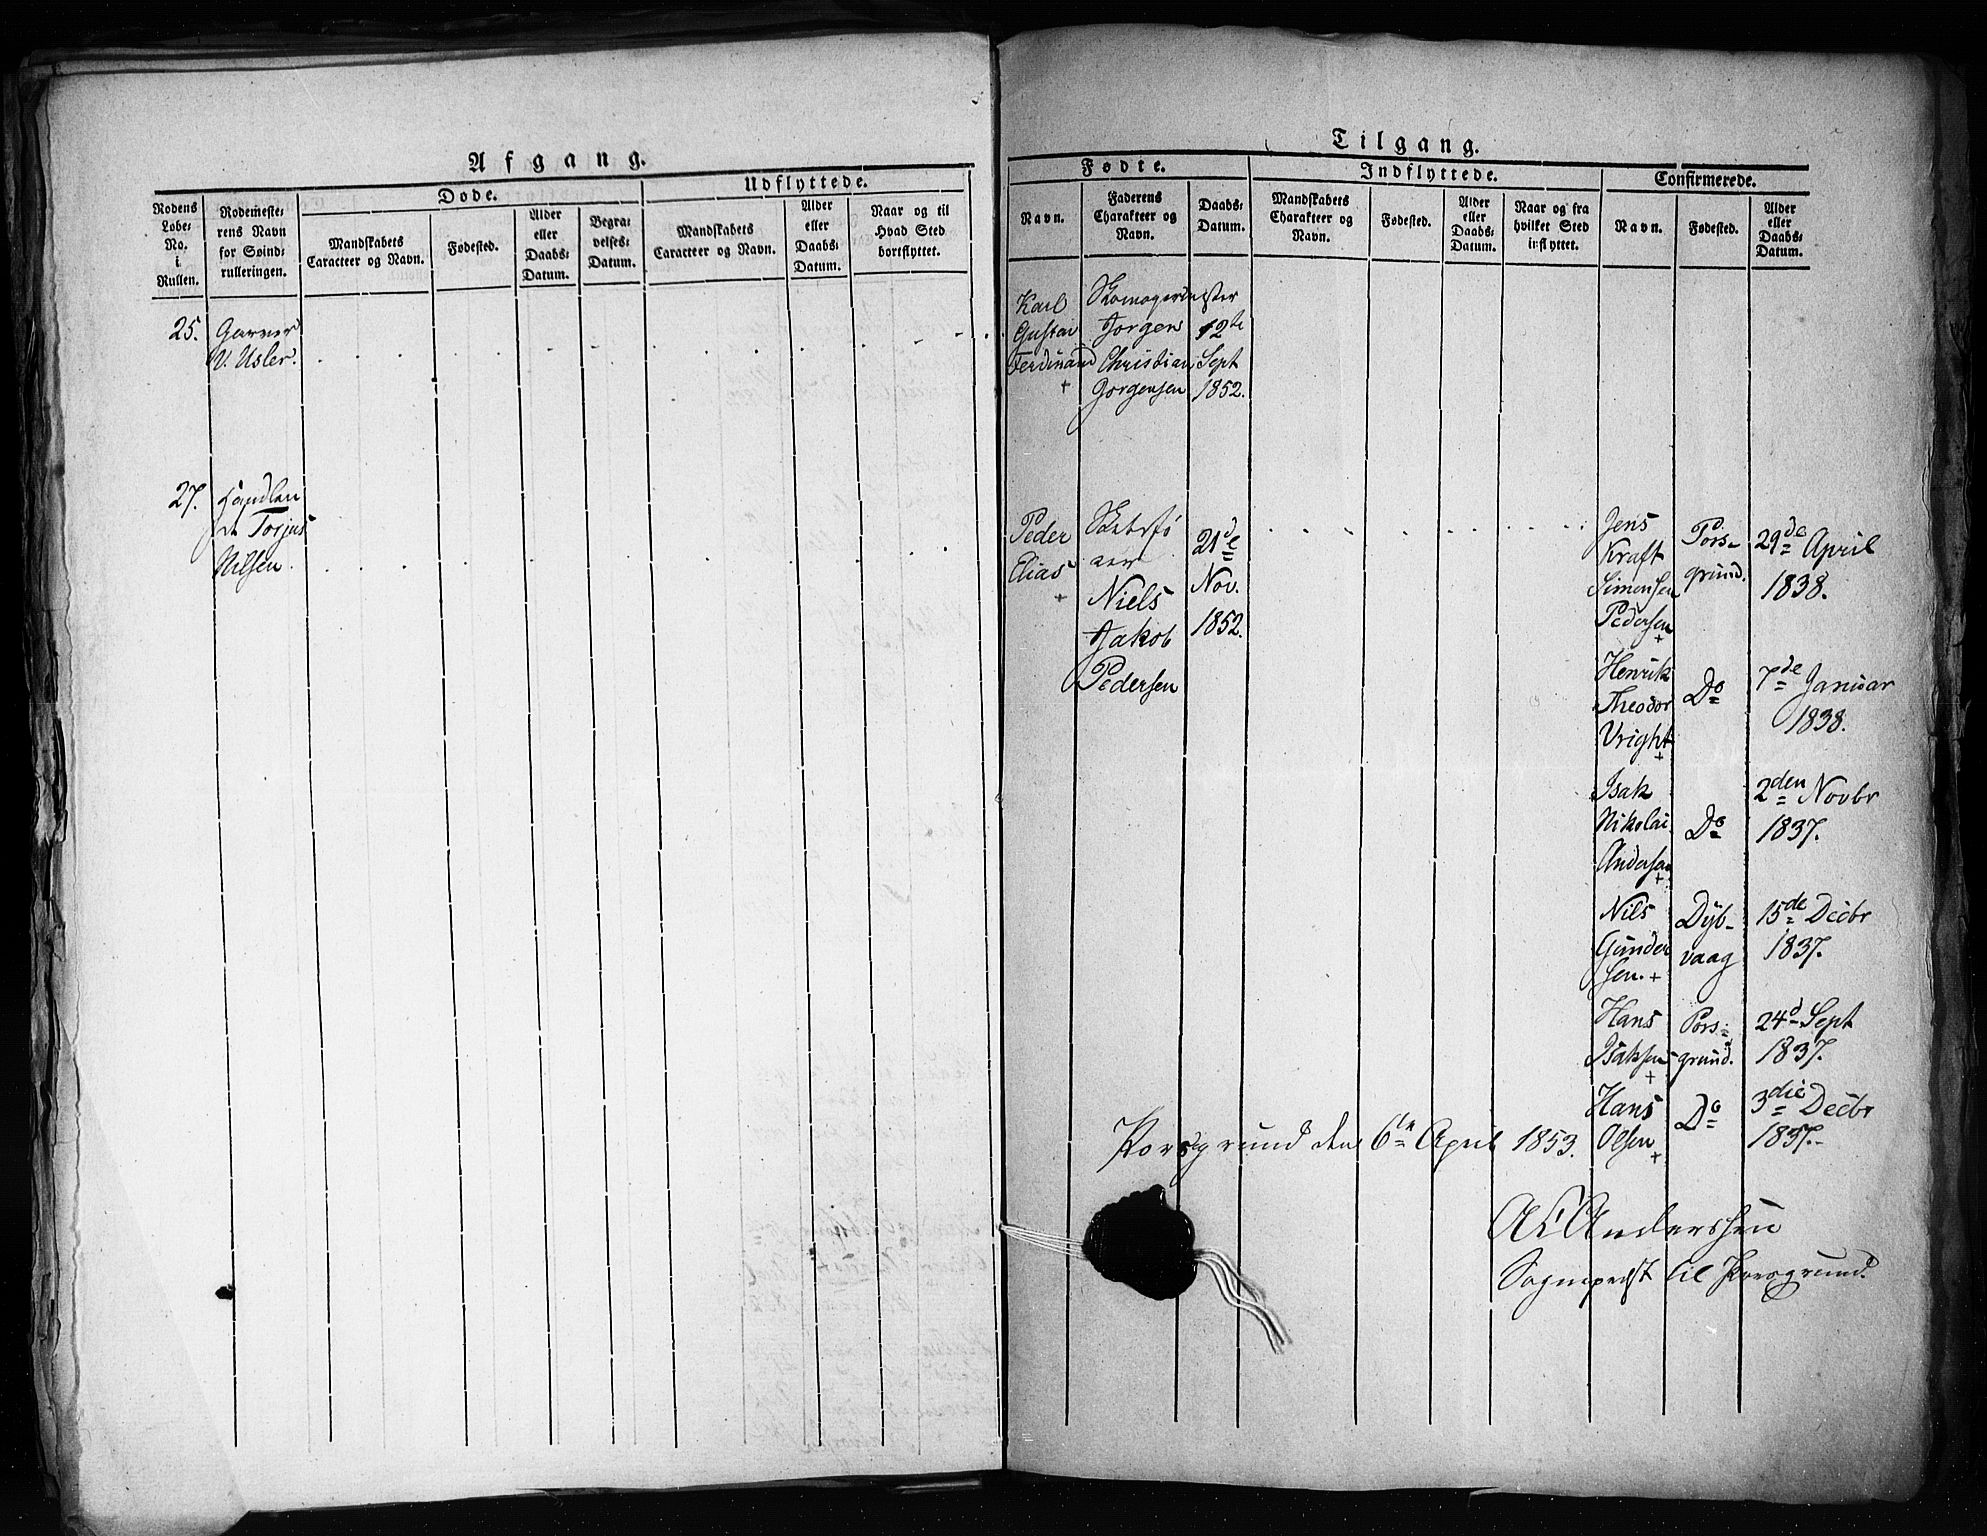 Afgang.
Døde.
Udflyttede.
Rodens
Løbe-
No.
i
Rullen.
Rodemeste-
rens Navn
for Søind-
rulleringen.
Mandskabets
Caracteer og Navn.
Fødested.
Alder
eller
Daabs-
Datum.
Begra-
velses-
Datum.
Mandskabets
Caracteer og Navn.
Alder
eller
Daabs-
Datum.
Naar og til
Hvad Sted
bortflyttet.
25.
Garver
V. Usler.
27.
Handlen
de Torjus
Nilsen.
Tilgang.
Fødte.
Indflyttede.
Confirmerede.
Navn.
Faderens
Charakteer og
Navn.
Daabs-
Datum.
Mandskabets
Charakteer og
Navn.
Fødested.
Alder
eller
Daabs-
Datum.
Naar og fra
hvilket Sted
indflyttet.
Navn.
Fødested.
Alder
eller
Daabs-
Datum.
Karl
Gustav
Ferdinand
+
Skomagermester
Jorgen
Christian
Gorgensen
12te
Sept
1852.
Peder
Elias
+
Niels
Jakob
Pedersen
21de
Nov.
1852.
Jens
Kraft
Simensen
Pedersen
+
Pors-
grund.
29de April
1838.
Henrik
Theodor
Vright
+
Do
7de Januar
1838.
Isak
Nikolai
Andersen
+
Do
2den Novbr
1837.
Nils
Gunder
sen. +
Dyb-
vaag
15de Decbr
1837.
Hans
Isaksen
+
Pors-
grund.
24d Sept
1837.
Hans
Olsen
+
Do
3die Decbr
1837.-
Porsgrund den 6te April 1853.
Andershen
Sognepræst til Porsgrund.